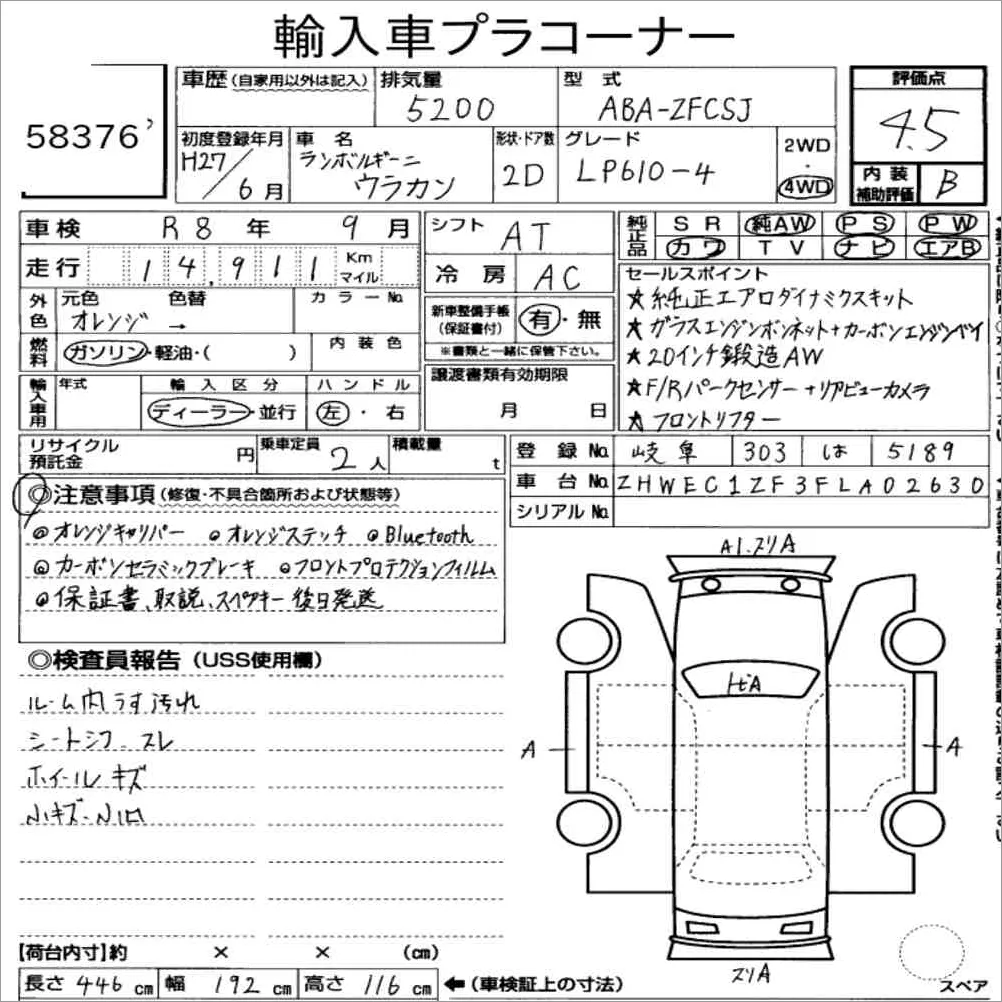 輸入車プラコーナー
58376
車歴 (自家用以外は記入)
排気量 5200
型式 ABA-ZFCSJ
評価点 4.5
初度登録年月 H27/6月
車名 ランボルギーニ ウラカン
形状・ドア数 2D
グレード LP610-4
2WD・4WD
内装補助評価 B
車検 R8年 9月
シフト AT
純正品 SR 純AW PS PW
カワ TV ナビ エアB
走行 14,911 Km マイル
冷房 AC
外色 元色 オレンジ → 色替 カラーNo.
新車整備手帳(保証書付) 有・無
※書類と一緒に保管下さい。
燃料 ガソリン・軽油・( ) 内装色
セールスポイント
★純正エアロダイナミクスキット
★ガラスエンジンボンネット+カーボンエンジンベイ
★20インチ鍛造AW
★F/Rパークセンサー+リアビューカメラ
★フロントリフター
輸入車用 年式 輸入区分 ディーラー・並行 ハンドル 左・右
譲渡書類有効期限 月 日
リサイクル預託金 円 乗車定員 2人 積載量 t
登録No. 岐阜 303 は 5189
車台No. ZHWEC1ZF3FLA02630
シリアルNo.
◎注意事項 (修復・不具合箇所および状態等)
◎オレンジキャリパー ◎オレンジステッチ ◎Bluetooth
◎カーボンセラミックブレーキ ◎フロントプロテクションフィルム
◎保証書、取説、スペアキー後日発送
◎検査員報告 (USS使用欄)
ルーム内うす汚れ
シートシワ スレ
ホイールキズ
小キズ・小凹
A1.スリA
トビA
A
A
スリA
【荷台内寸】約 × × (cm)
長さ 446cm 幅 192cm 高さ 116cm ←(車検証上の寸法)
スペア